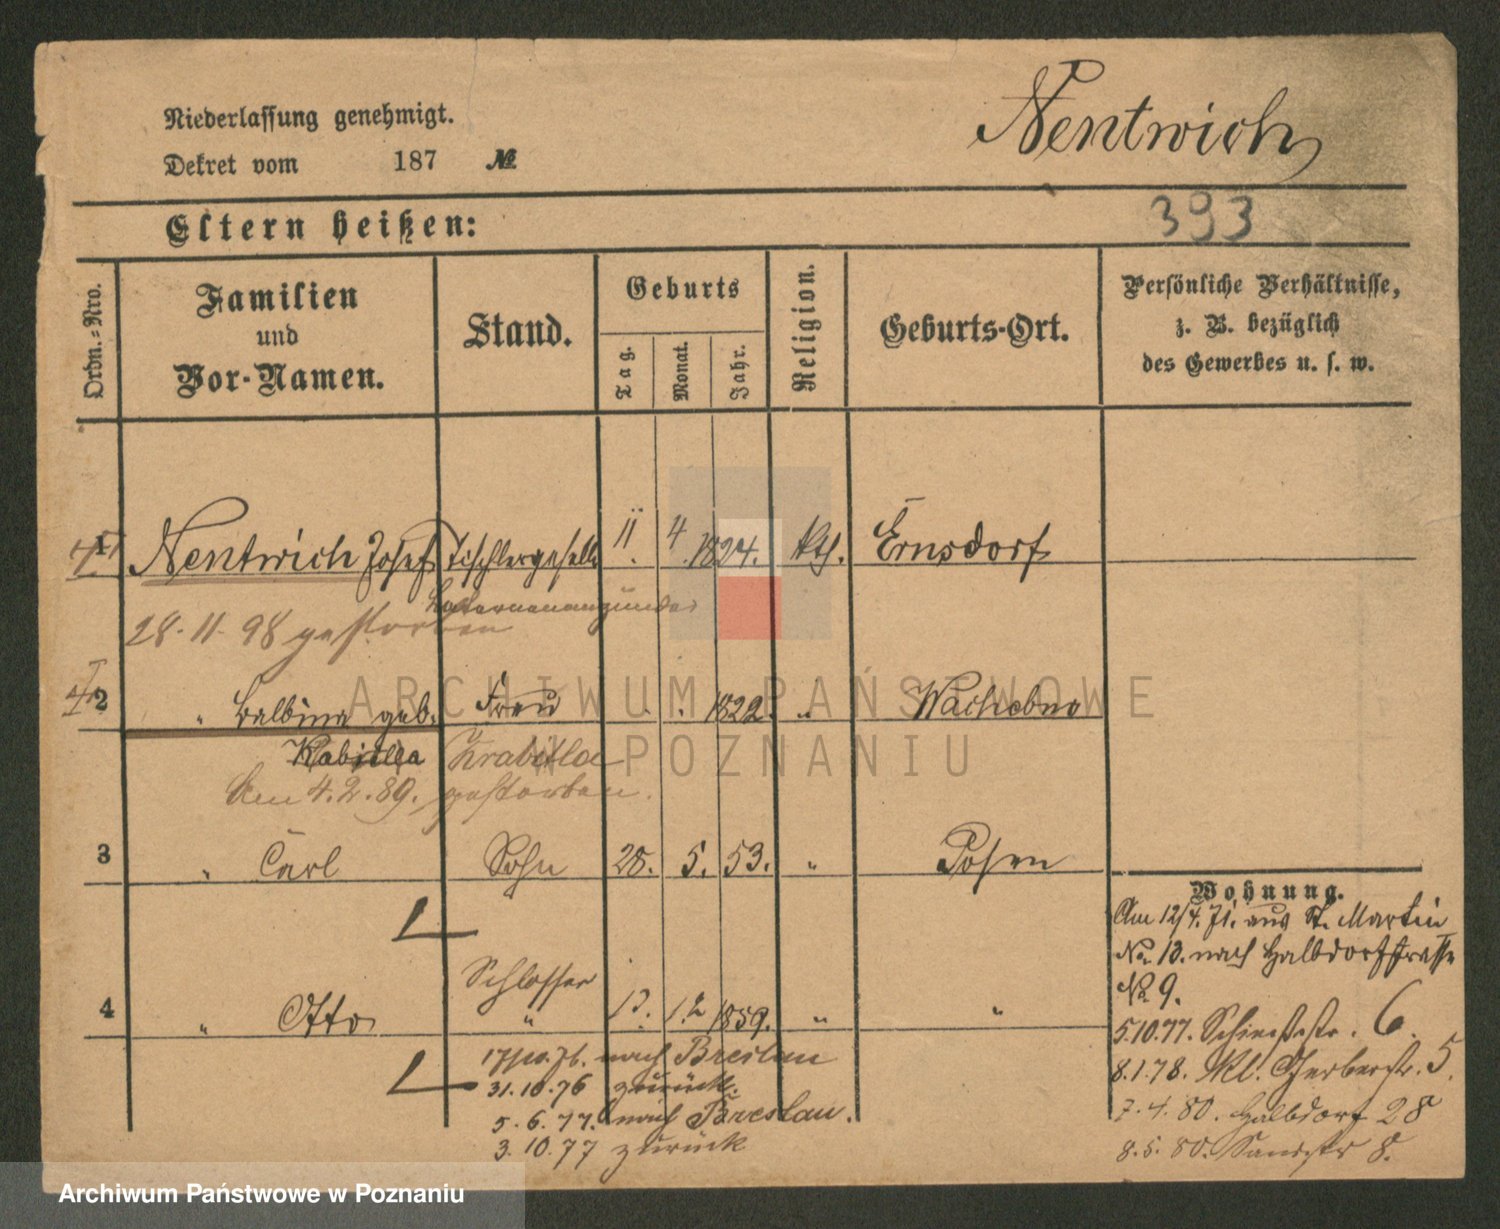 Niederlassung genehmigt.
Dekret vom 187 №
Nentwich
Eltern heißen:
393
Ordn.-Nro.
Familien und Vor-Namen.
Stand.
Geburts
Tag. Monat. Jahr.
Religion.
Geburts-Ort.
Persönliche Verhältnisse, z. B. bezüglich des Gewerbes u. s. w.
1 Nentwich Josef Tischlergeselle 11. 4. 1824. kth. Ernsdorf
Laternenanzünder
28. 11. 98 gestorben
2 " Balbina geb. Frau . . 1822. "
Krabitla
Am 4. 2. 89. gestorben.
3 " Carl Sohn 28. 5. 53. " Posen
Wohnung.
Am 12/4. 71. aus St. Martin
No 13. nach Halbdorfstrasse
No 9.
Schlosser
4 " Otto " 13. 12 1859. " "
5.10.77. 6.
17/10.76. nach Breslau
31.10.76 zurück.
8.1.78. Kl. Gerberstr. 5.
5. 6. 77. nach Breslau.
7. 4. 80. Halbdorf 28
3. 10. 77 zurück
8. 5. 80. Sandstr 8.
ARCHIWUM PAŃSTWOWE
W POZNANIU
Archiwum Państwowe w Poznaniu